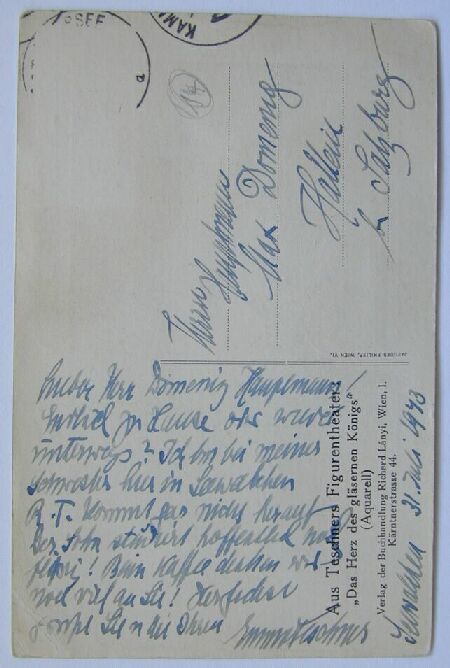 SEE
KAM
a
14
Herrn
Hauptmann
Max Domenig
Hallein
b. Salzburg
Lieber Herr Domenig Hauptmann!
Endlich zu Hause oder wieder
unterwegs? Ich bin bei meiner
Schwester hier in Seewalchen
R. T. kommt gar nicht herauf
Der Sohn studiert hoffentlich
fleißig! Beim Kaffee denken wir
noch viel an Sie! Herzlichst
grüßt Sie u. die Ihren
Seewalchen 31. Juli 1943
Aus Teschners Figurentheater:
„Das Herz des gläsernen Königs"
(Aquarell)
Verlag der Buchhandlung Richard Lányi, Wien, I.
Kärntnerstrasse 44.